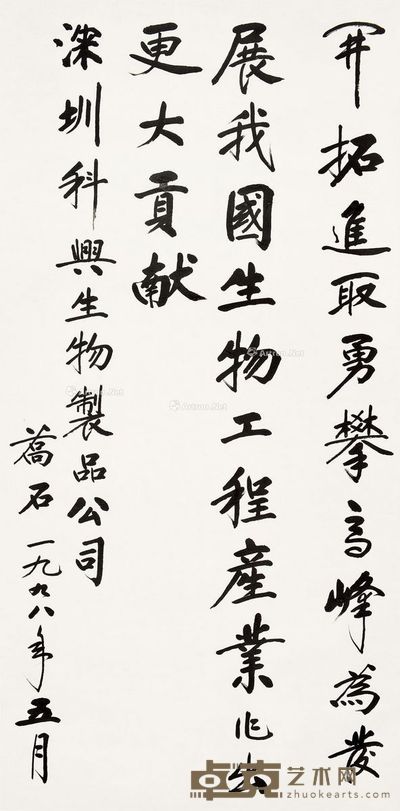 開拓進取勇攀高峰為發
展我國生物工程產業作出
更大貢献
深圳科興生物製品公司
喬石一九九八年五月
Artron.Net
Artron.Net
Artron.Net
Artron.Net
卓克艺术网
zhuokearts.com